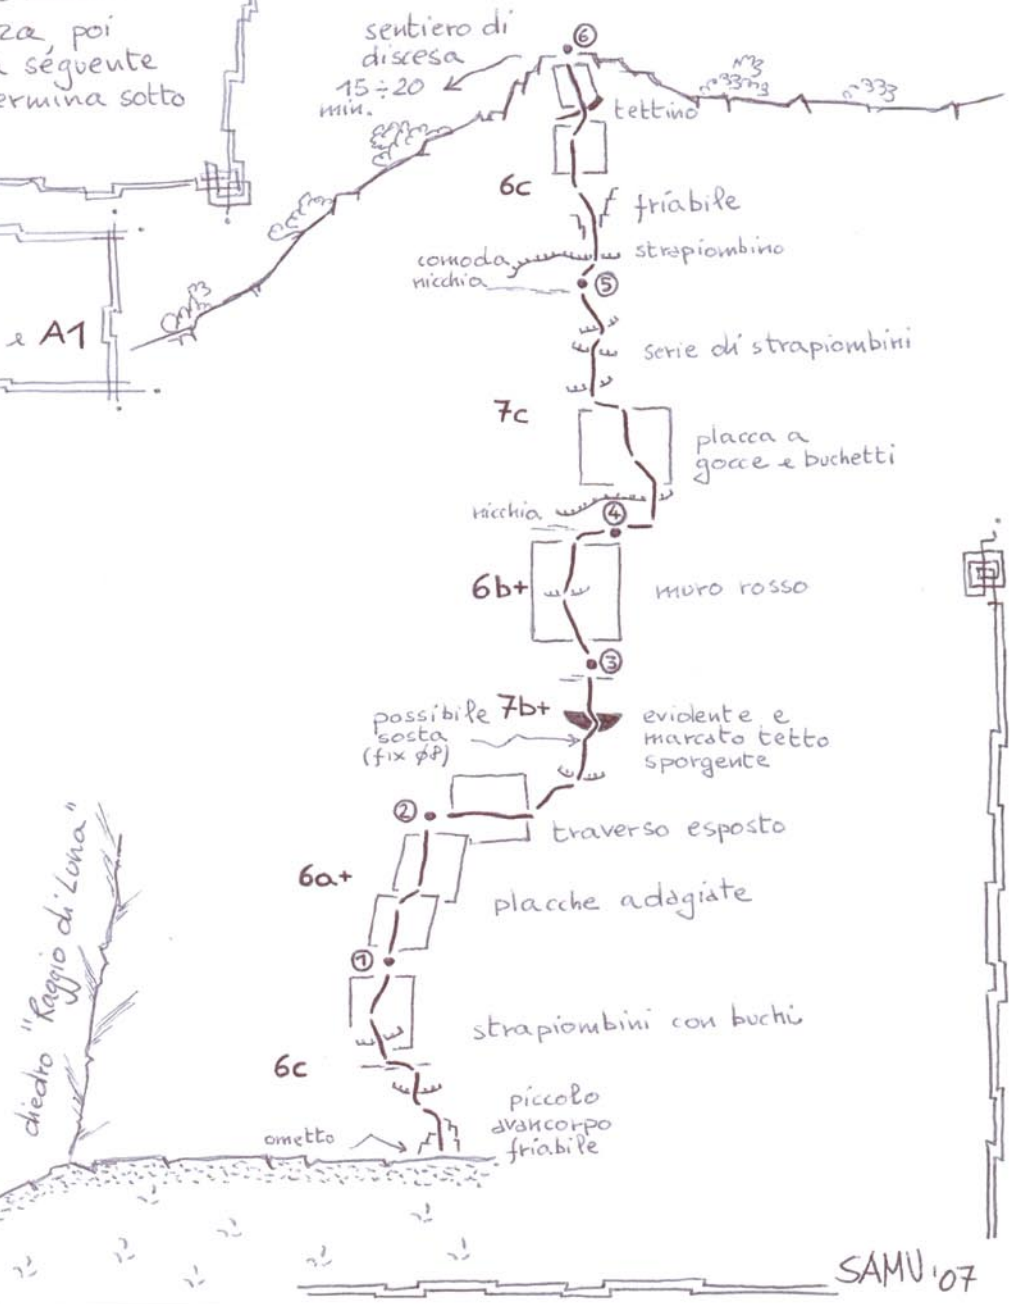 za, poi
a séguente
ermina sotto
e A1
sentiero di
discesa
15÷20
min.
6
tettino
6c
friabile
strapiombino
comoda
nicchia
5
serie di strapiombini
7c
placca a
gocce e buchetti
nicchia
4
6b+
muro rosso
3
possibile
sosta
(fix ø8)
7b+
evidente e
marcato tetto
sporgente
2
traverso esposto
6a+
placche adagiate
1
strapiombini con buchi
6c
piccolo
avancorpo
friabile
ometto
diedro "Raggio di Luna"
SAMU '07